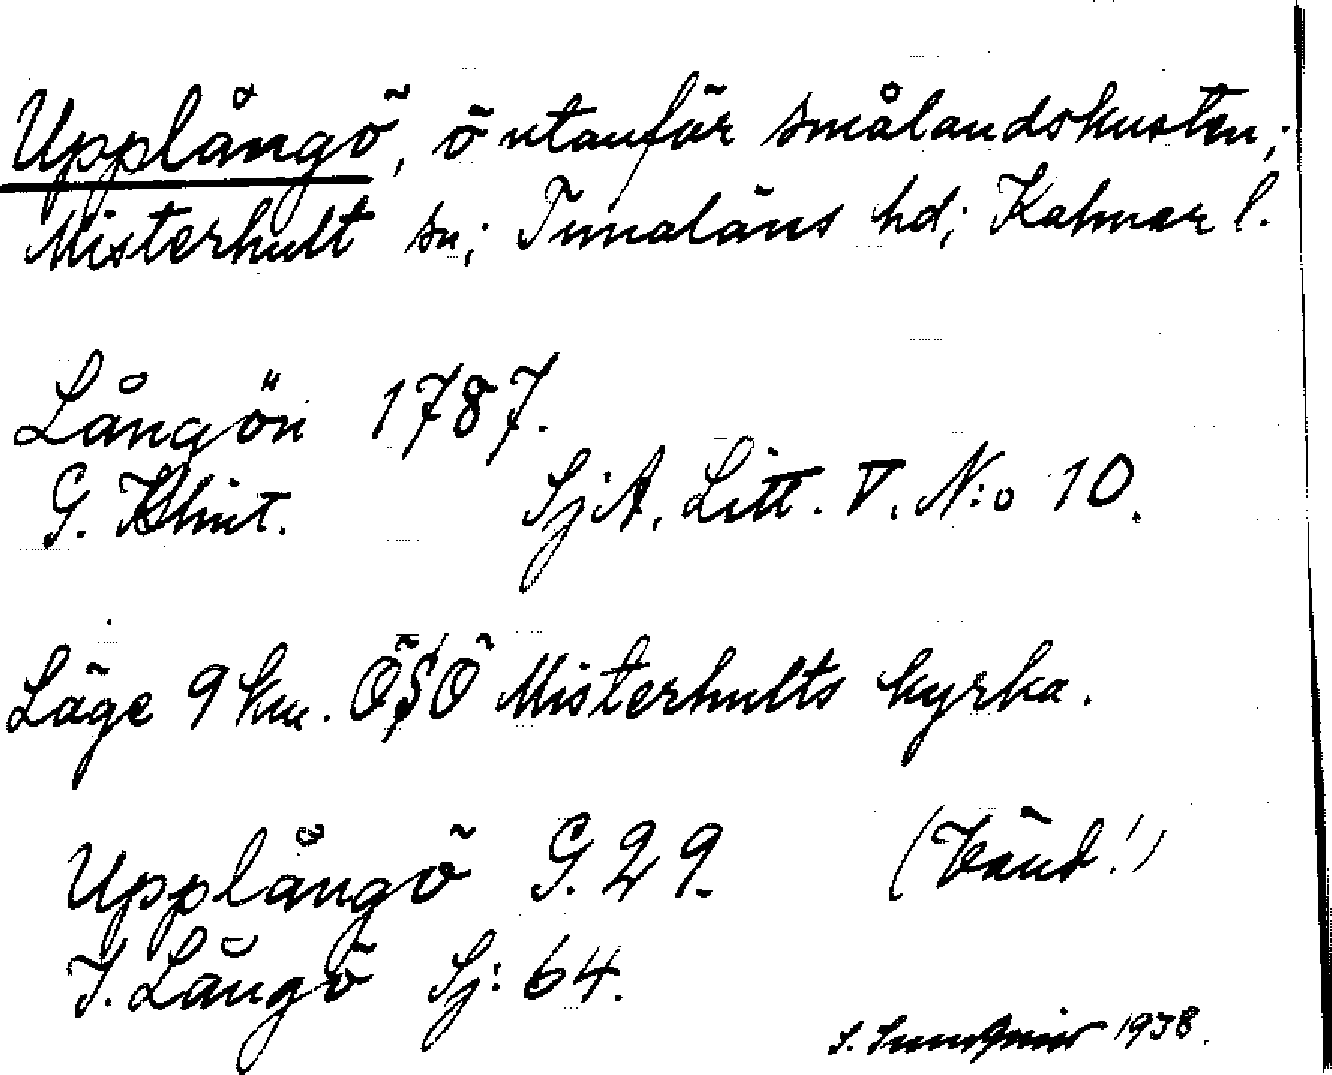 Upplångö, ö utanför smålandskusten;
Misterhult sn; Tunaläns hd; Kalmar l.
Långön 1787.
G. Klint. SjA. Litt. V. N:o 10.
Läge 9 km. ÖSÖ Misterhults kyrka.
Upplångö G. 29. (Vänd!)
I. Långö Sj: 64.
S. 1938.